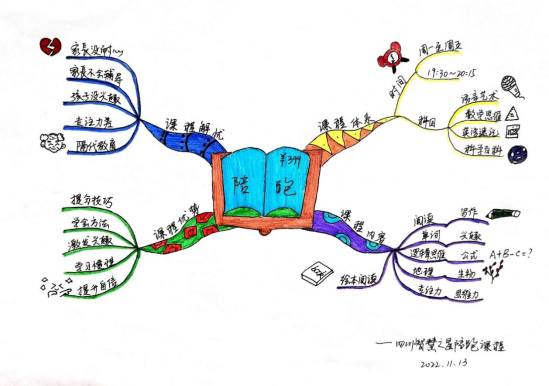 陪跑
¥399
课程解忧
家长没时间
家长不会辅导
孩子没兴趣
专注力差
隔代教育
课程体系
时间
周一至周五
19:30~20:15
科目
语言艺术
数学思维
英语速记
科学百科
课程优势
提分技巧
学会方法
激发兴趣
学习习惯
提升自信
课程内容
阅读
写作
单词
兴趣
逻辑思维
公式
A+B-C=?
地理
生物
专注力
思维力
绘本阅读
——四川智慧之星陪跑课程
2022.11.13